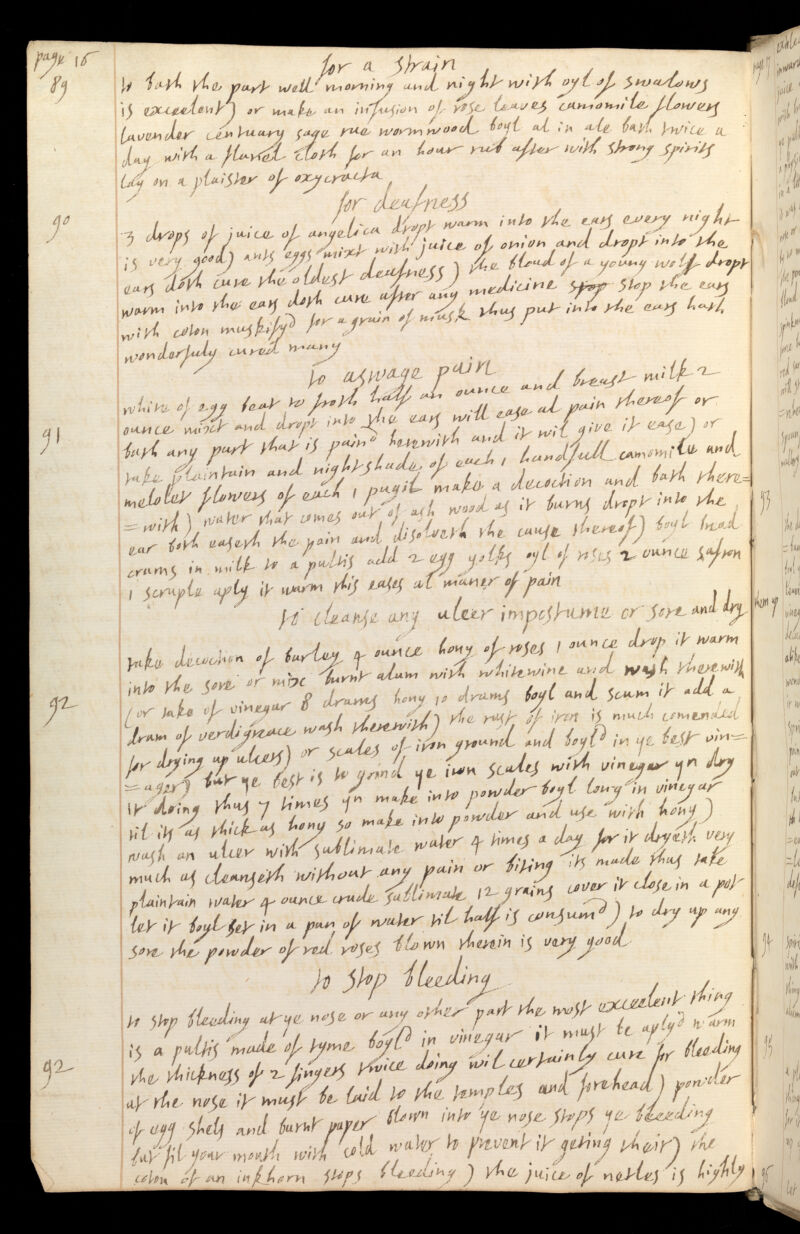 page 16
for a strain
89
to bath the part well morning and night with oyl of swalows
is exceelent) or make an infusion of rose leaves camomile flowers
lavender centuary sage rue wormwood boyl al in ale bath twice a
day with a flanel cloth for an hour rub after with strong spirits
lay on a plaister of oxycracta
for deafness
90
3 drops of juice of angelica dropt warm into the ears every night
is very good) ants eggs mixt with juice of onion and dropt into the
ears doth cure the oldest deafness) the bloud of a young wolf dropt
warm into the ears doth cure after any medicine stop stop the ears
with coton muskifyd for a grain of musk thus put into the ears hath
wonderfuly cured many
to aswage pain
91
white of egg beat to froth half an ounce and breast milk 2
ounce mixt and dropt into the ears will ease al pain thereof or
bath any part that is paind herewith and it wil give it ease) or
take plaintain and nightshade of each 1 handfull camomile and
melolet flowers of each 1 pugil make a decoction and bath there=
=with) water that comes out of ash wood as it burns dropt into the
ear both easeth the pain and disolveth the cause thereof) boyl bread
crams in milk to a pultis add 2 egg yolks oyl of roses 2 ounce safron
1 scruple aply it warm this eases al maner of pain
to cleanse any ulcer impostume or sore and dry
them up
92
take decoction of barley 4 ounce hony of roses 1 ounce drop it warm
into the sore or mix burnt alum with whitewine and wash therewith
(or take of vinegar 8 drams hony 10 drams boyl and scum it add a
dram of verdigreace wash therewith) the rust of iron is much comended
for drying up ulcers) or scales of iron ground and boyld in ye best vin=
=ager) but ye best is to grind ye iron scales with vinegar yn dry
it doing thus 7 times yn make into powder boyl long in vinegar
til its as thick as hony so make into powder and use with hony)
wash an ulcer with sublimate water 4 times a day for it dryeth very
much as cleanseth without any pain or biting its made thus take
plaintain water 4 ounce crude sublimate 12 grains cover it close in a pot
let it boyl set in a pan of water til half is consumd) to dry up any
sore the powder of red roses blown therein is very good
to stop bleeding
92
to stop bleeding at ye nose or any other part the most exceelent thing
is a pultis made of tyme boyld in vinegar it must be aplyd warm
the thickness of 2 fingers twice doing wil certainly cure for bleeding
at the nose it must be laid to the temples and forehead) powder
of egg shels and burnt paper blown into ye nose stops ye bleeding
but fil your mouth with cold water to prevent it geting their) the
coton of an inkhorn stops bleeding) the juice of netles is highly